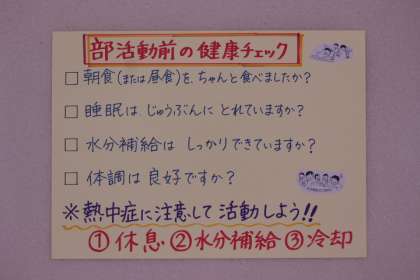 部活動前の健康チェック
□ 朝食(または昼食)を、ちゃんと食べましたか?
□ 睡眠は、じゅうぶんに とれていますか?
□ 水分補給は しっかりできていますか?
□ 体調は 良好ですか?
※熱中症に注意して 活動しよう!!
①休息 ②水分補給 ③冷却